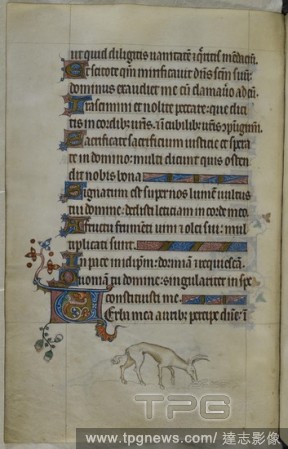 ut quid diligitis vanitatē ⁊ q̄ritis mēdaciū.
Et scitote qm̄ mirificavit dn̄s scm̄ suū:
dominus exaudiet me cū clamav̄o ad eū.
Irascimini et nolite peccare: que dici
tis in cordib; vr̄is. ⁊ in cubilib; vr̄is cōpūgimī.
Sacrificate sacrificium iusticie et spera
te in domino: multi dicunt quis osten
dit nobis bona
Signatum est super nos lumē vultus
tui domine: dedisti leticiam in corde meo
A fructu frumēti vini et olei sui: mul
tiplicati sunt.
In pace in idipm̄: dormiā ⁊ requiescā.
Quoniam tu domine: singulariter in spe
constituisti me
Verba mea aurib; percipe dn̄e: ī
TPG
www.tpgnews.com/達志影像